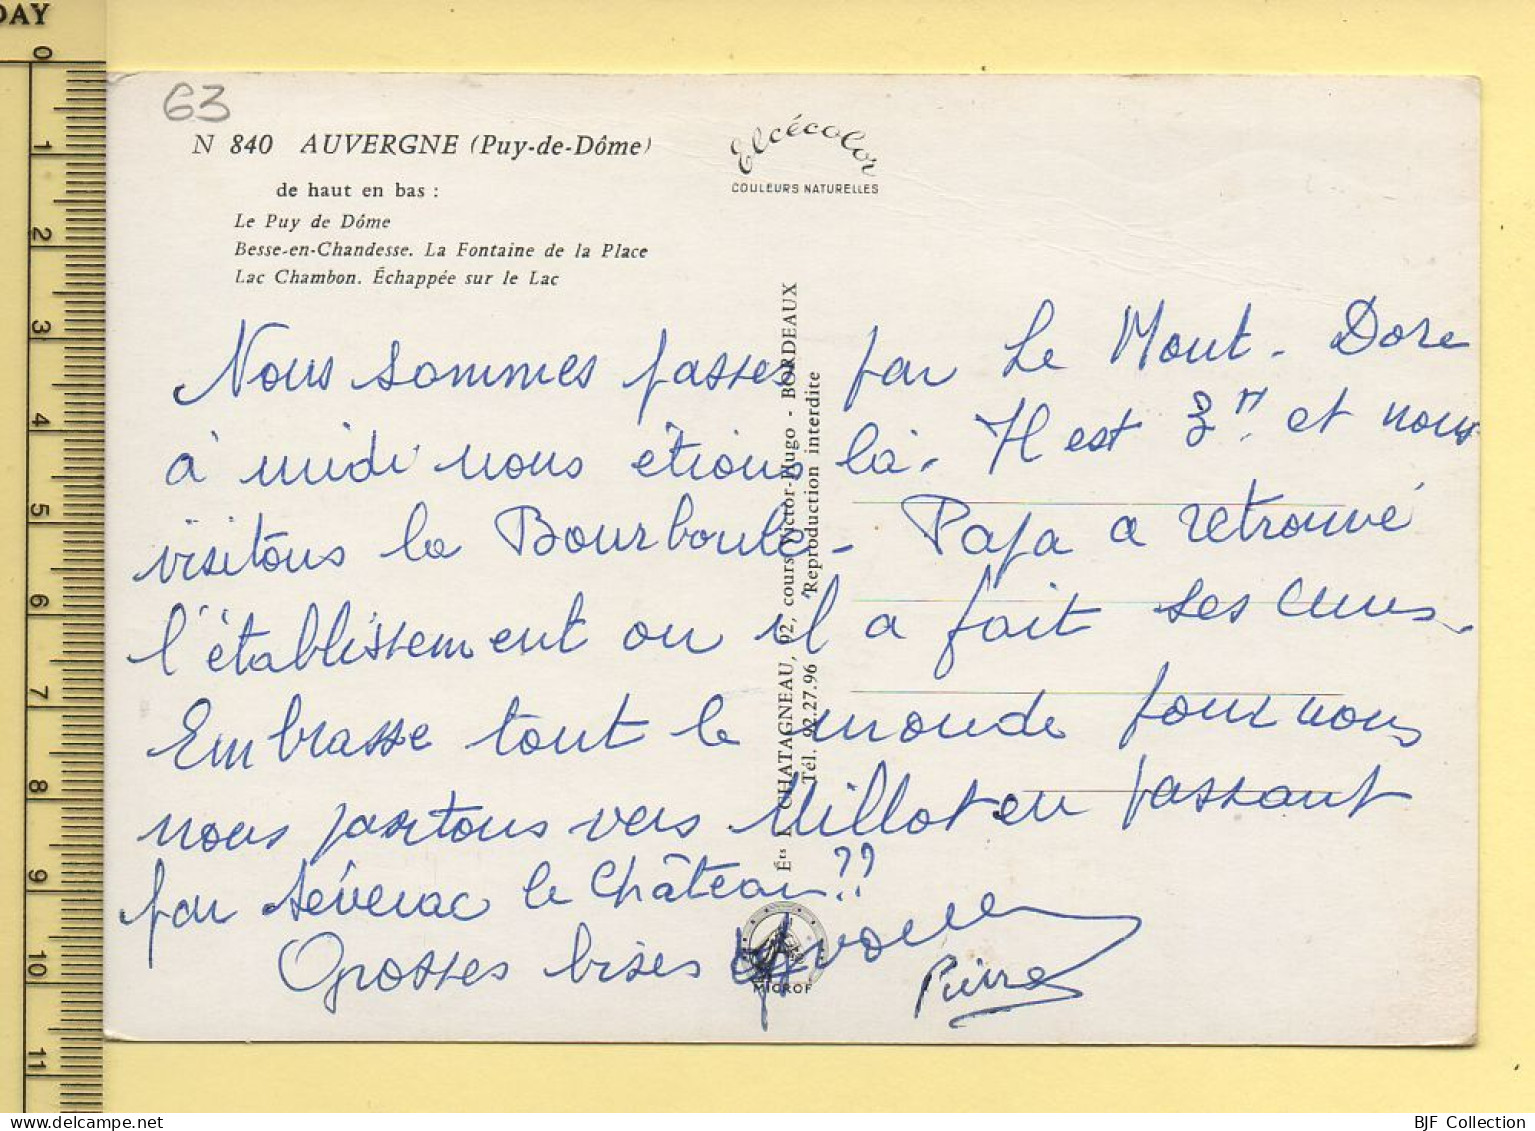 DAY
0
1
2
3
4
5
6
7
8
9
10
11
63
N 840 AUVERGNE (Puy-de-Dôme)
de haut en bas :
Le Puy de Dôme
Besse-en-Chandesse. La Fontaine de la Place
Lac Chambon. Échappée sur le Lac
Elcécolor
COULEURS NATURELLES
Nous sommes passés par Le Mont-Dore
à midi nous étions là. Il est 3H et nous
visitons la Bourboule - Papa a retrouvé
l'établissement ou il a fait ses cures.
Embrasse tout le monde pour nous
nous partons vers Millot en passant
par Séverac le Château ??
Grosses bises Yvonne
Pierre
Éts CHATAGNEAU, 92, cours Victor-Hugo - BORDEAUX
Tél. 92.27.96 Reproduction interdite
MICROF
BJF Collection